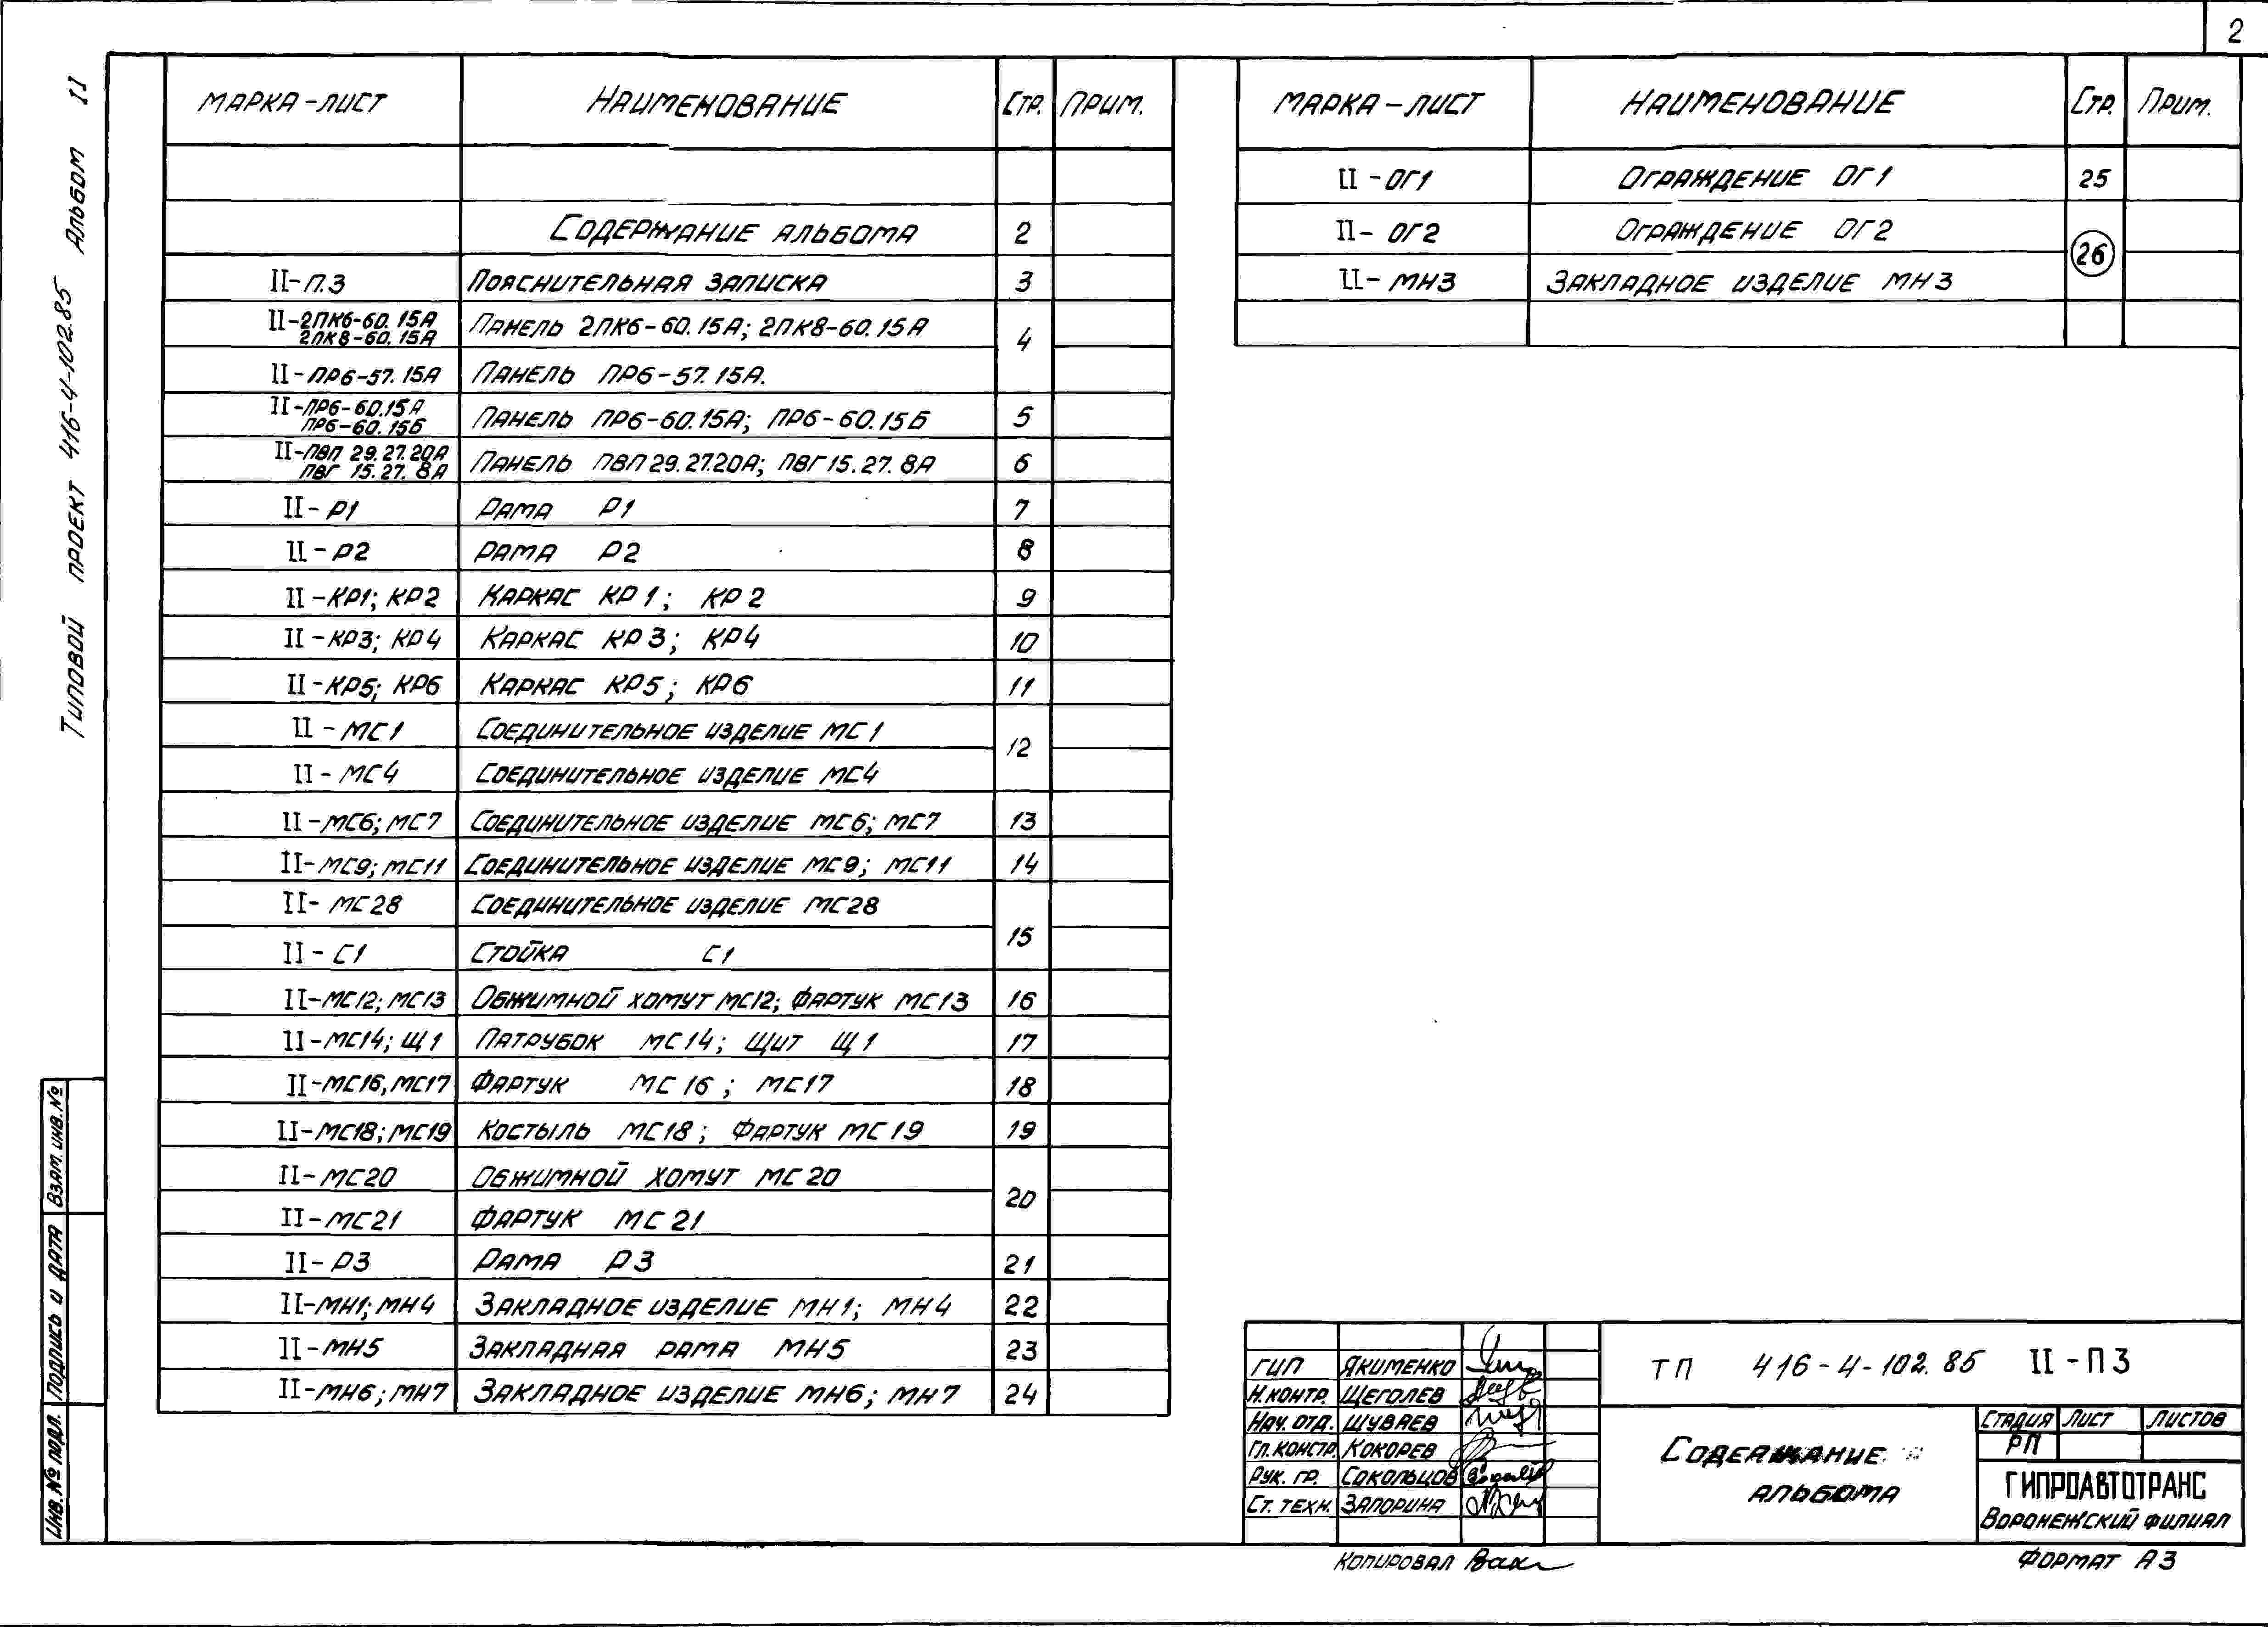 2
Типовой проект 416-4-102.85 Альбом II
Марка-лист Наименование Стр. Прим.
Содержание альбома 2
II-П.З Пояснительная записка 3
II-2ПК6-60.15А
2ПК8-60.15А Панель 2ПК6-60.15А; 2ПК8-60.15А 4
II-ПР6-57.15А Панель ПР6-57.15А.
II-ПР6-60.15А
ПР6-60.15Б Панель ПР6-60.15А; ПР6-60.15Б 5
II-ПВП 29.27.20А
ПВГ 15.27.8А Панель ПВП 29.27.20А; ПВГ 15.27.8А 6
II-Р1 Рама Р1 7
II-Р2 Рама Р2 8
II-КР1; КР2 Каркас КР1; КР2 9
II-КР3; КР4 Каркас КР3; КР4 10
II-КР5; КР6 Каркас КР5; КР6 11
II-МС1 Соединительное изделие МС1 12
II-МС4 Соединительное изделие МС4
II-МС6; МС7 Соединительное изделие МС6; МС7 13
II-МС9; МС11 Соединительное изделие МС9; МС11 14
II-МС28 Соединительное изделие МС28 15
II-С1 Стойка С1
II-МС12; МС13 Обжимной хомут МС12; Фартук МС13 16
II-МС14; Щ1 Патрубок МС14; Щит Щ1 17
II-МС16, МС17 Фартук МС16; МС17 18
II-МС18; МС19 Костыль МС18; Фартук МС19 19
II-МС20 Обжимной хомут МС20 20
II-МС21 Фартук МС21
II-Р3 Рама Р3 21
II-МН1; МН4 Закладное изделие МН1; МН4 22
II-МН5 Закладная рама МН5 23
II-МН6; МН7 Закладное изделие МН6; МН7 24
Марка-лист Наименование Стр. Прим.
II-ОГ1 Ограждение ОГ1 25
II-ОГ2 Ограждение ОГ2 26
II-МН3 Закладное изделие МН3
Взам. инв. №
Подпись и дата
Инв. № подл.
ГИП Якименко
Н.контр. Щеголев
Нач. отд. Шуваев
Гл. констр. Кокорев
Рук. гр. Сокольцов
Ст. техн. Запорина
ТП 416-4-102.85 II-ПЗ
Содержание
альбома
Стадия Лист Листов
РП
ГИПРОАВТОТРАНС
Воронежский филиал
Копировал
Формат А3